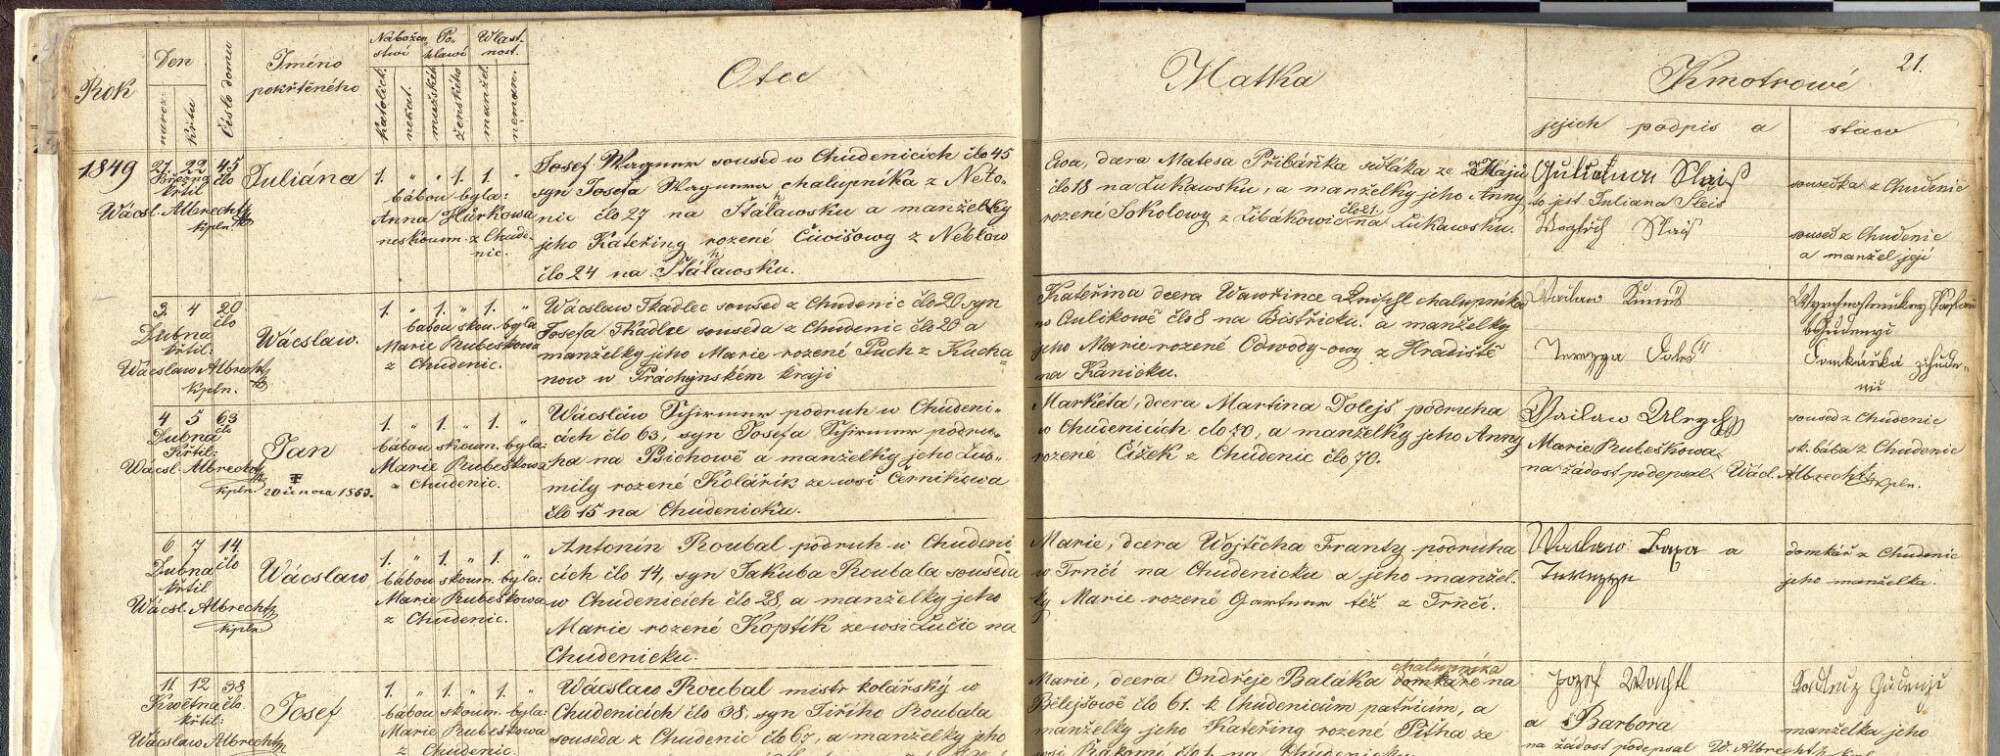 21.
Rok
Den
naroz.
křtu
číslo domu
Jméno
pokřtěného
Nábožen
stwí
katolick.
nekat.
Po
hlawí
mužské
ženského
Wlast-
nost.
manžel.
neman.
Otec
Matka
Kmotrowé
jejich podpis a staw
1849
21 22 45
Března člo
křtil
Wácsl. Albrecht
kpln.
Juliána
1. " " 1. 1. "
bábou byla:
Anna Hürkowa
neskoum. z Chude-
nic.
Josef Wagner soused w Chudenicích člo 45
syn Josefa Wagnera chalupníka z Neto-
nic člo 27 na Šťáhlawsku a manželky
jeho Kateřiny rozené Čiwišowy z Neblow
člo 24 na Šťáhlawsku.
Ewa, dcera Matesa Přibáňka sedláka ze Zdáje
člo 18 na Lukawsku, a manželky jeho Anny
rozené Sokolowy z Libákowic člo 21. na Lukawsku.
Juliana Slais
to jest Juliana Sleis
Wogtěch Slais
souseďka z Chudenic
soused z Chudenic
a manžel její
3 4 20
Dubna člo
křtil:
Wácslaw Albrecht
kpln.
Wácslaw.
1. " 1. " 1. "
bábou skou. byla
Marie Rubeškowa
z Chudenic.
Wácslaw Tkadlec soused z Chudenic člo 20 syn
Josefa Tkadlce souseda z Chudenic člo 20 a
manželky jeho Marie rozené Puch z Kucha
now w Práchynském kraji
Kateřina dcera Wawřince chalupníka
w Čulikowě člo 8 na Bistřicku. a manželky
jeho Marie rozené Odwody-owy z Hradiště
na Kanicku.
Wáclaw
Terezya
4 5 63
Dubna člo
křtil:
Wácsl. Albrecht
kpln.
Jan
20 února 1853.
1. " 1. " 1. "
bábou skoum. byla:
Marie Rubeškowa
z Chudenic.
Wácslaw Schirmer podruh w Chudeni-
cích člo 63, syn Josefa Schirmer podru-
ha na Bichowě a manželky jeho Lud-
mily rozené Kolářík ze wsi Černíkowa
člo 15 na Chudenicku.
Markéta, dcera Martina Dolejš, podruha
w Chudenicích člo 70, a manželky jeho Anny
rozené Čížek z Chudenic člo 70.
Waclaw Ulrych
Marie Rubeškowa
na žádost podepsal Wácl. Albrecht kpln.
soused z Chudenic
sk. bába z Chudenic
6 7 14
Dubna člo
křtil
Wácsl. Albrecht
kpln.
Wácslaw
1. " 1. " 1. "
bábou skoum. byla:
Marie Rubeškowa
z Chudenic.
Antonín Roubal podruh w Chudeni-
cích člo 14, syn Jakuba Roubala souseda
w Chudenicích člo 28, a manželky jeho
Marie rozené Koptík ze wsi Lučic na
Chudenicku.
Marie, dcera Wojtěcha Franty podruha
w Trnčí na Chudenicku a jeho manžel-
ky Marie rozené Gartner též z Trnčí.
Waclaw Lapa a
Terezye
domkář z Chudenic
jeho manželka.
11 12 38
Května člo
křtil:
Wácslaw Albrecht
Josef
1. " 1. " 1. "
bábou skoum. byla:
Marie Rubeškowa
z Chudenic.
Wácslaw Roubal mistr kolářský w
Chudenicích člo 38, syn Jiřího Roubala
souseda z Chudenic člo 67, a manželky jeho
Marie, dcera Ondřeje Baláka domkáře na
chalupníka
Bělejšowě člo 61. k Chudenicům patřícím, a
manželky jeho Kateřiny rozené Pitha ze
Jozef Wachtl
a Barbora
na žádost podepsal W. Albrecht
manželka jeho